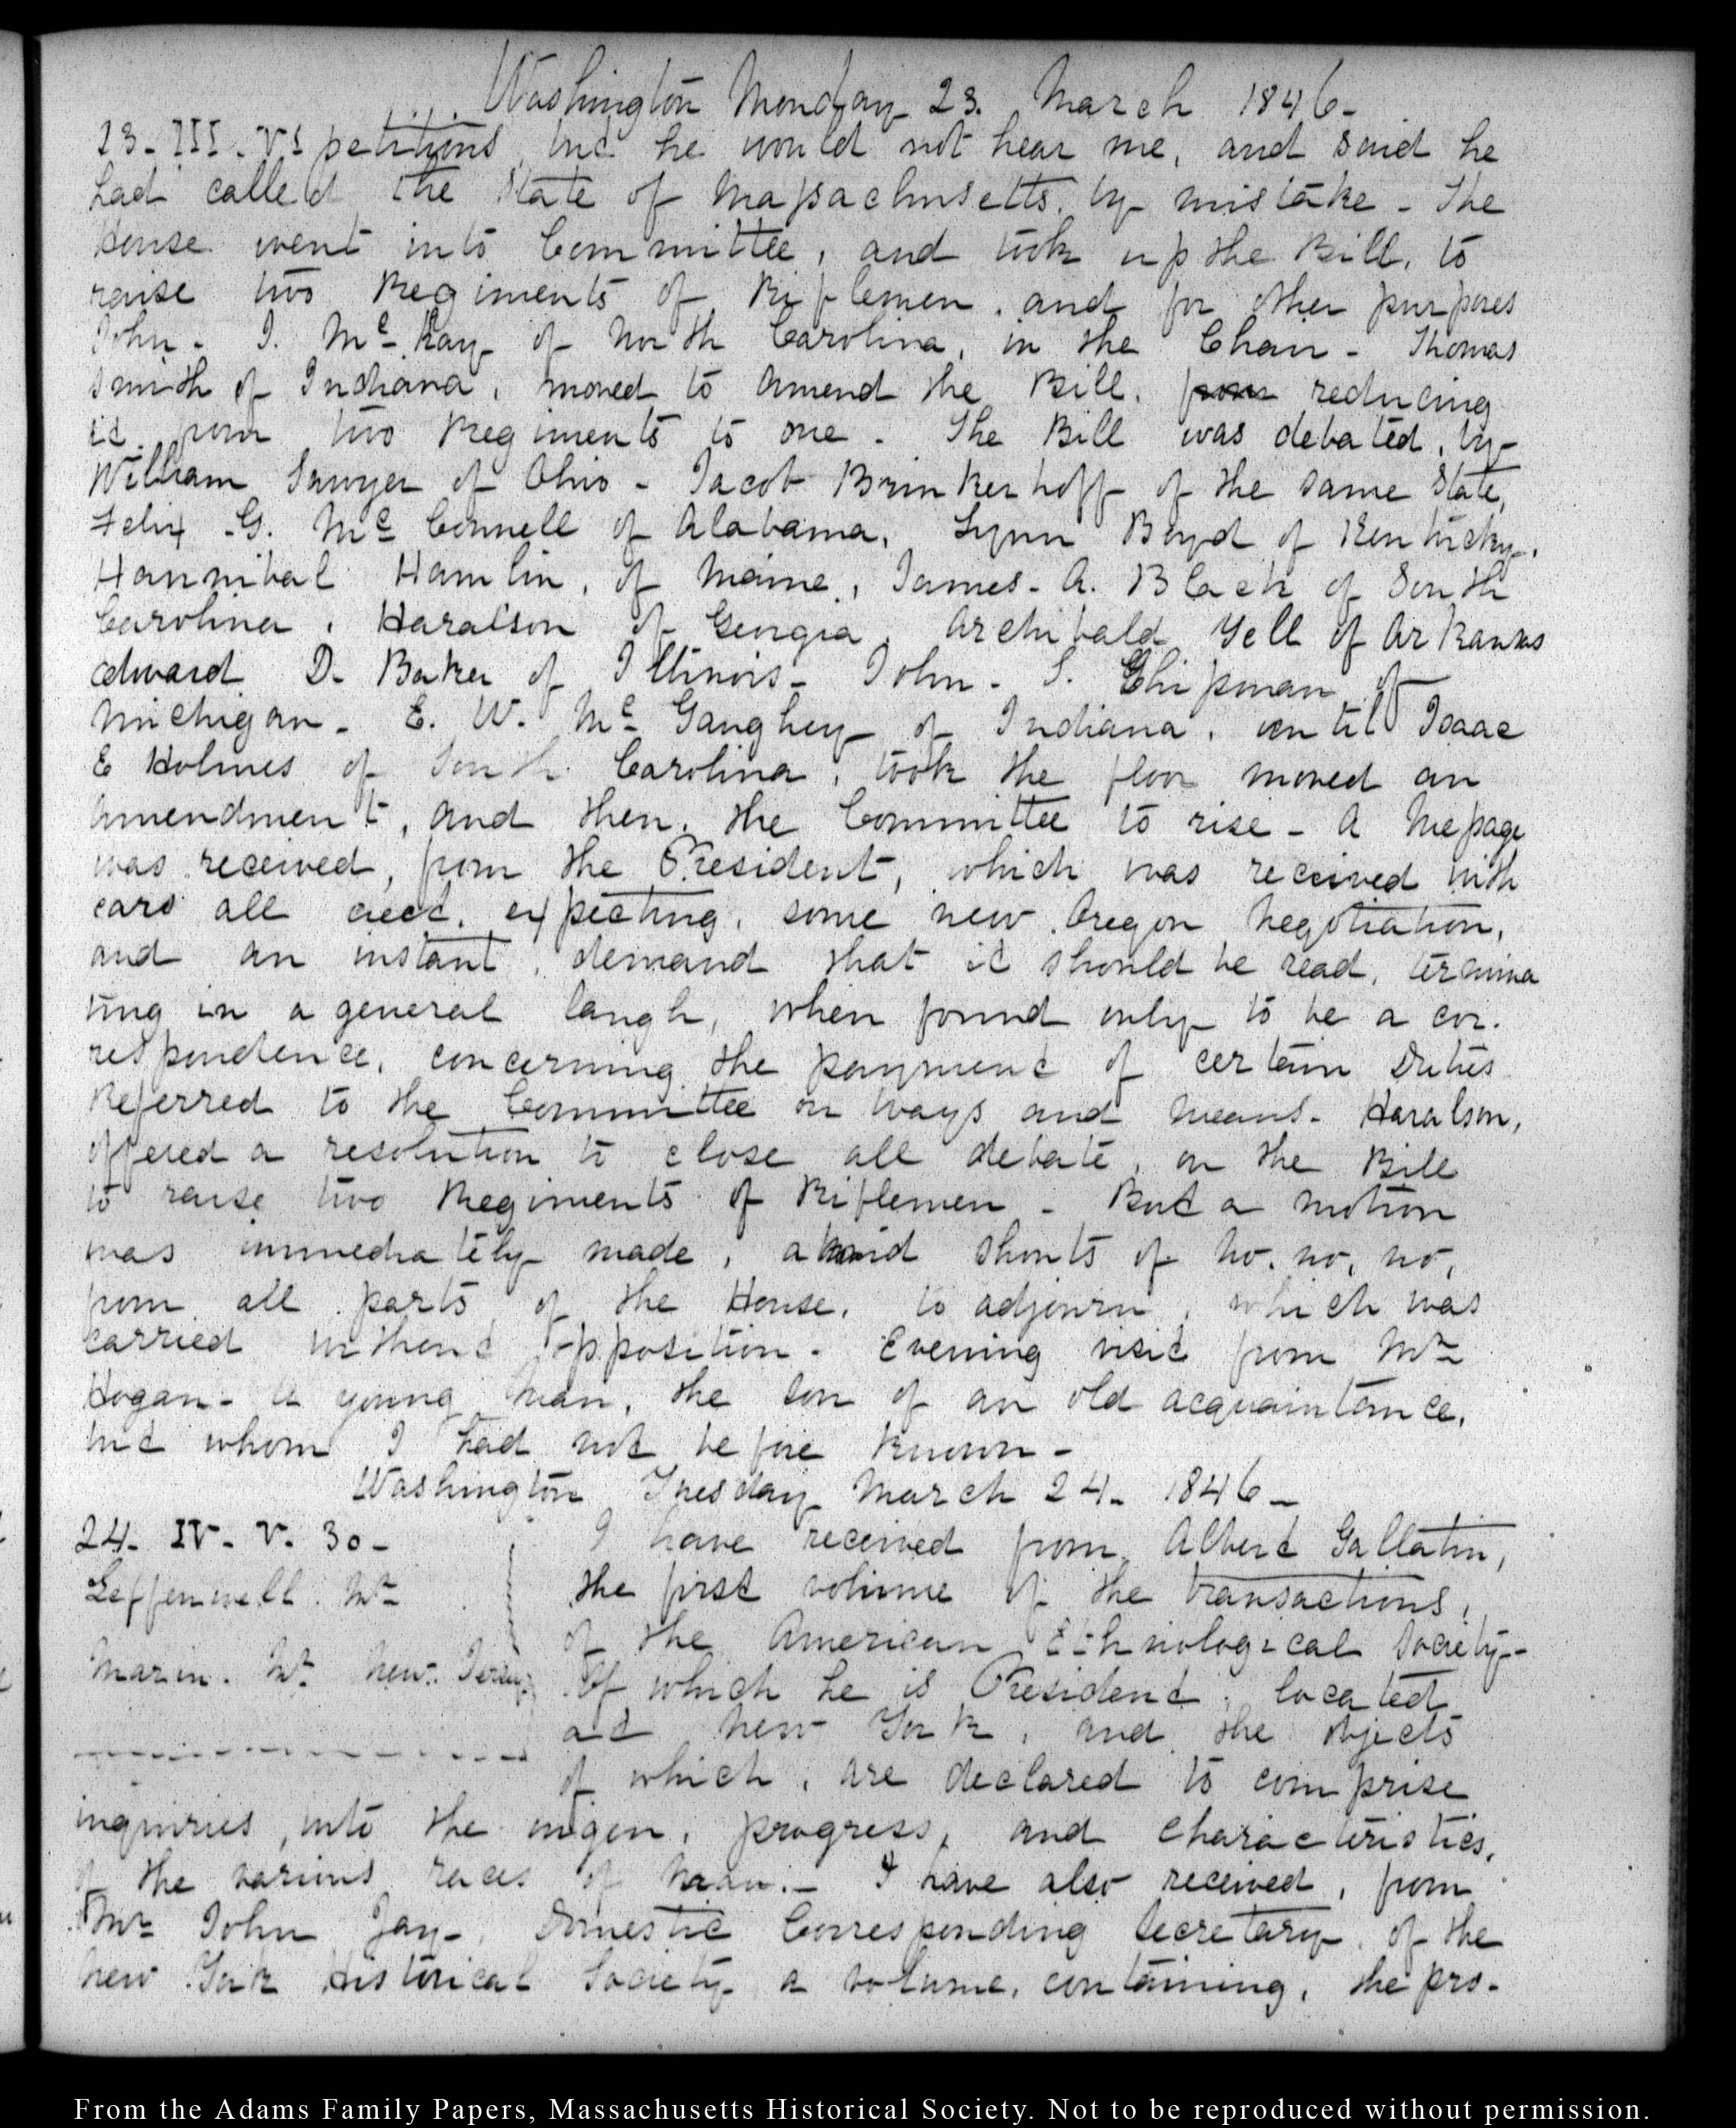 Washington Monday 23. March 1846-
23. III. VI petitions, but he would not hear me, and said he
had called the State of Massachusetts by mistake - The
House went into Committee, and took up the Bill, to
raise two Regiments of Riflemen, and for other purposes
John - I. Mc Kay of North Carolina, in the Chair - Thomas
Smith of Indiana, moved to amend the Bill, from reducing
it from two Regiments to one - The Bill was debated, by
William Sawyer of Ohio - Jacob Brinkerhoff of the same State,
Felix G. Mc Connell of Alabama, Lynn Boyd of Kentucky,
Hannibal Hamlin, of Maine, James - A. Black of South
Carolina, Haralson of Georgia, Archibald Yell of Arkansas
Edward D. Baker of Illinois - John - S. Chipman of
Michigan - E. W. Mc Gaughey of Indiana, until Isaac
E Holmes of South Carolina, took the floor moved an
amendment, and then, the Committee to rise - A Message
was received, from the President, which was received with
ears all erect, expecting, some new Oregon Negotiation,
and an instant, demand that it should be read, termina
ting in a general laugh, when found only to be a cor-
respondence, concerning the payment of certain Duties
Referred to the Committee on Ways and Means - Haralson,
offered a resolution to close all debate, on the Bill
to raise two Regiments of Riflemen - But a motion
was immediately made, amid shouts of No, no, no,
from all parts of the House, to adjourn, which was
carried without opposition - Evening visit from Mr
Hogan - a young man, the son of an old acquaintance,
but whom I had not before known -
Washington Tuesday March 24. 1846-
24. IV. V. 30 - I have received from Albert Gallatin,
Leffenwell Mr the first volume of the transactions,
of the American Ethnological Society -
Marin. Mr New Jersey Of which he is President, located
at New York, and the objects
of which, are declared to comprise
inquiries, into the origin, progress, and characteristics,
of the various races of Man. - I have also received, from
Mr John Jay -, Domestic Corresponding Secretary, of the
New York Historical Society a volume, containing, the pro-
From the Adams Family Papers, Massachusetts Historical Society. Not to be reproduced without permission.